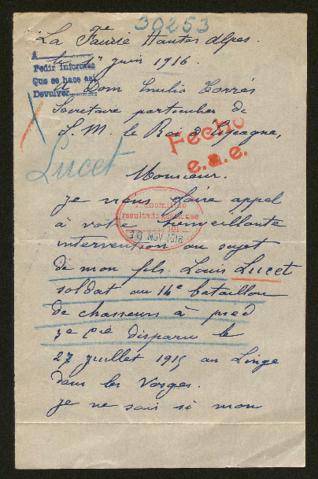 30253
La Faurie Hautes Alpes
A
le 1er juin 1916
Pedir informes
Que se hace así
Devolver
A Dom Emilio Torrés
Secretaire particulier de
S. M. le Roi d'Espagne,
Fecho
e.m.e.
Lucet
Monsieur.
je viens faire appel
à votre bienveillante
30 NOV 1916
intervention au sujet
de mon fils Louis Lucet
soldat au 14e bataillon
de chasseurs à pied
3e Cie disparu le
27 juillet 1915 au Linge
dans les Vosges.
je ne sais si mon